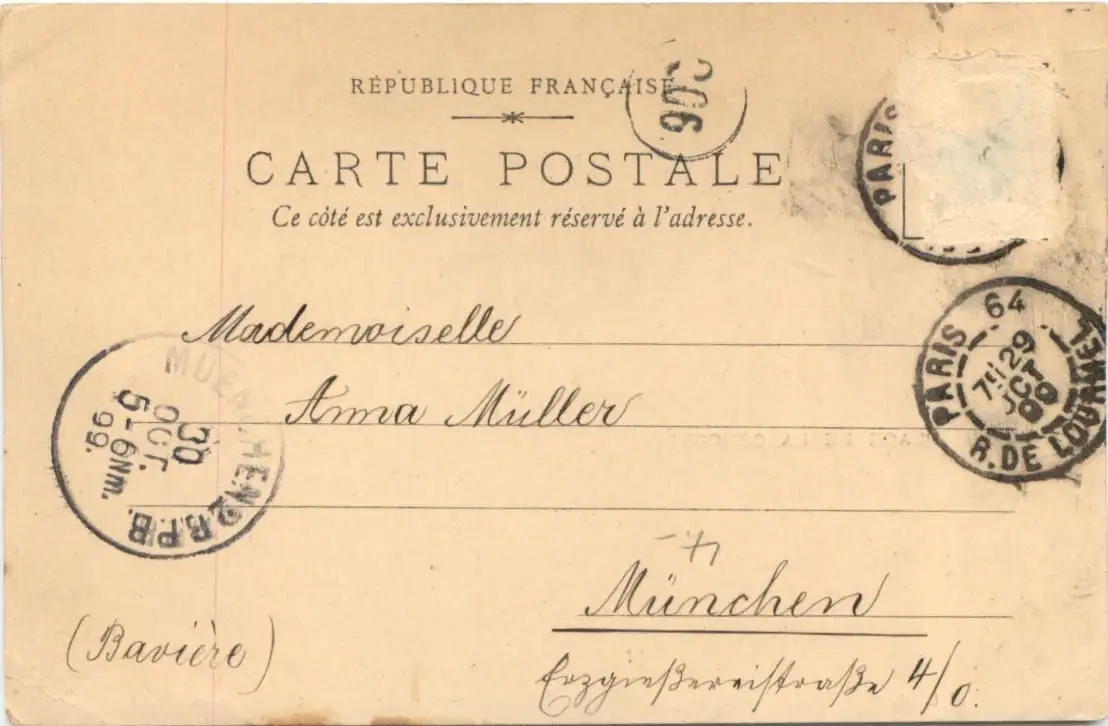 RÉPUBLIQUE FRANÇAISE
906
CARTE POSTALE
Ce côté est exclusivement réservé à l'adresse.
PARIS
PARIS 64 R. DE LOURMEL
7E 29
OCT
99
Mademoiselle
Anna Müller
MUENCHEN 2 B.P.B.
30
OCT.
5-6 Nm.
99.
München
(Bavière)
Erzgießereistraße 4/0.